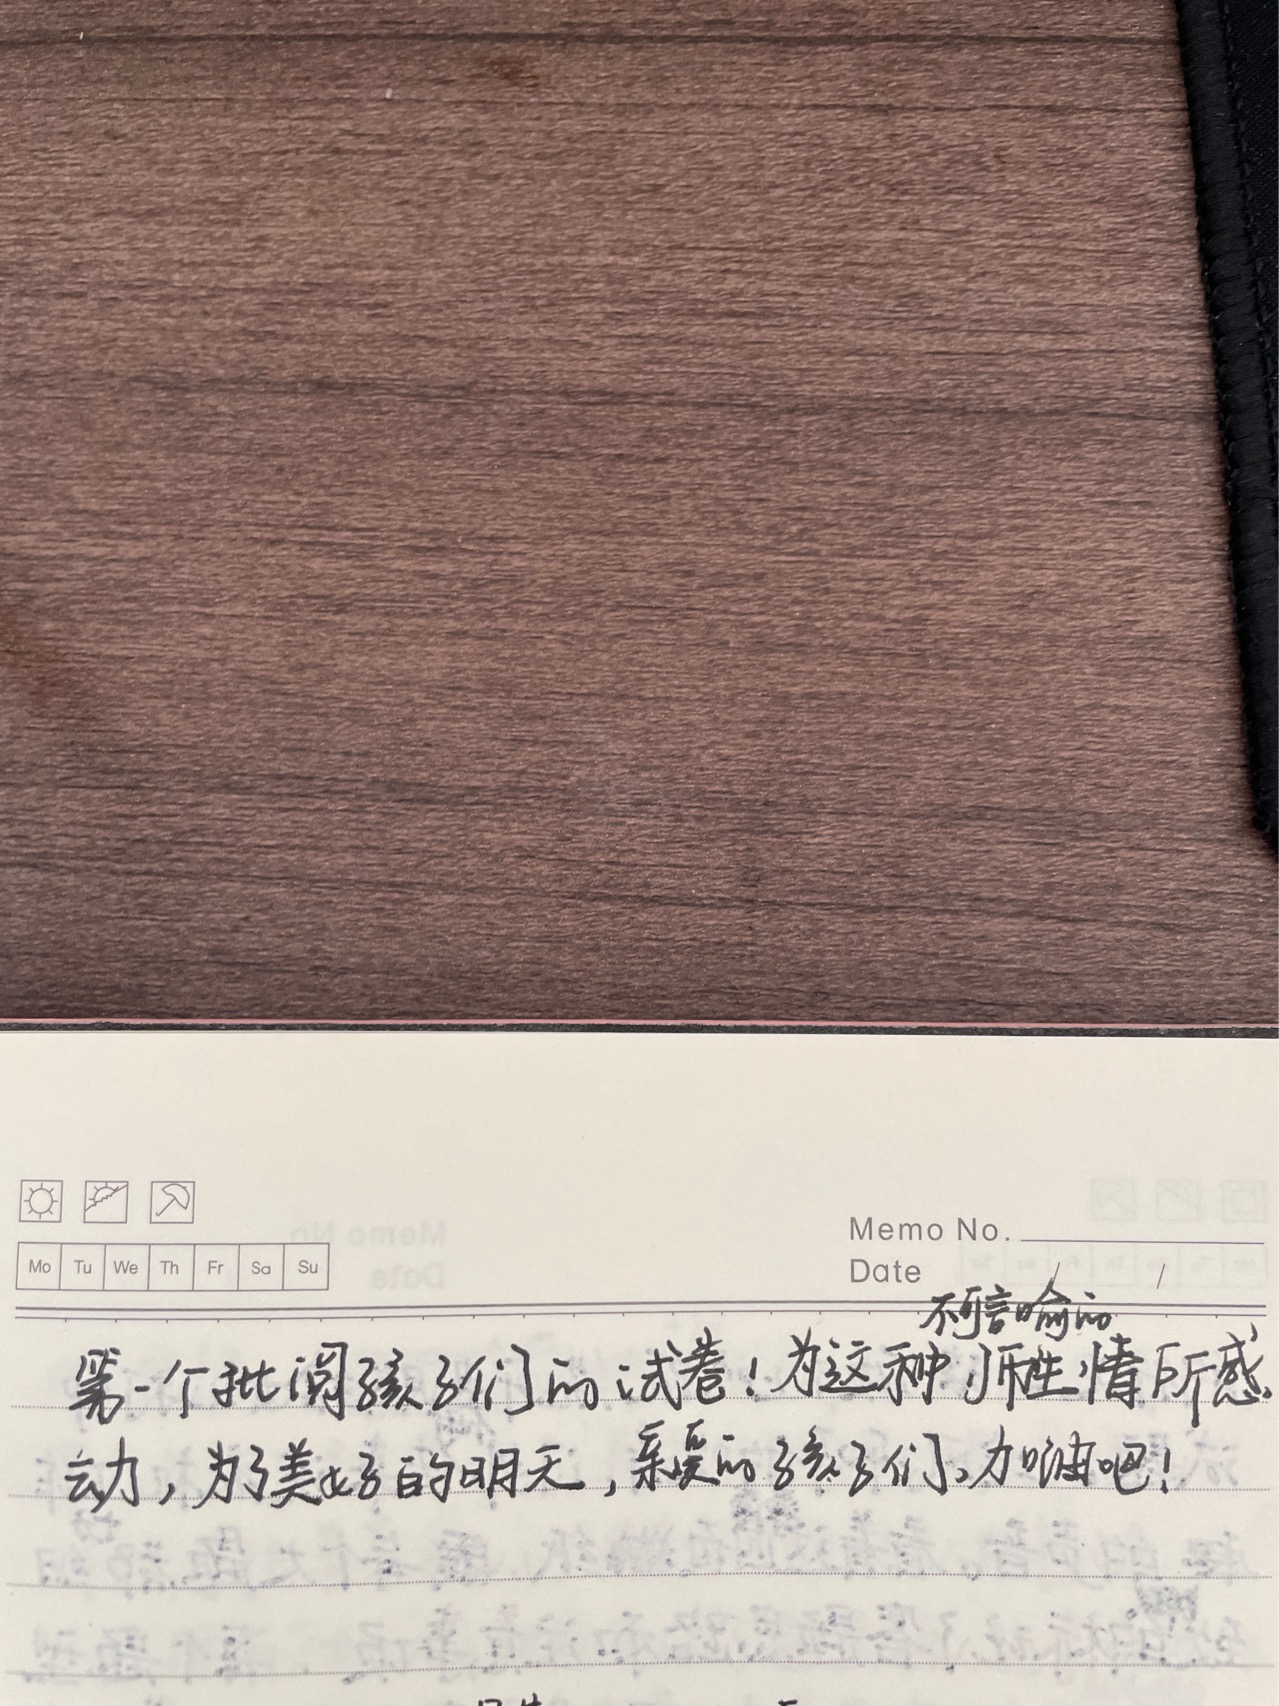 Memo No.
Date / /
Mo Tu We Th Fr Sa Su
不可言喻的
第一个批阅孩子们的试卷！为这种师生情所感
动，为了美好的明天，亲爱的孩子们，加油吧！